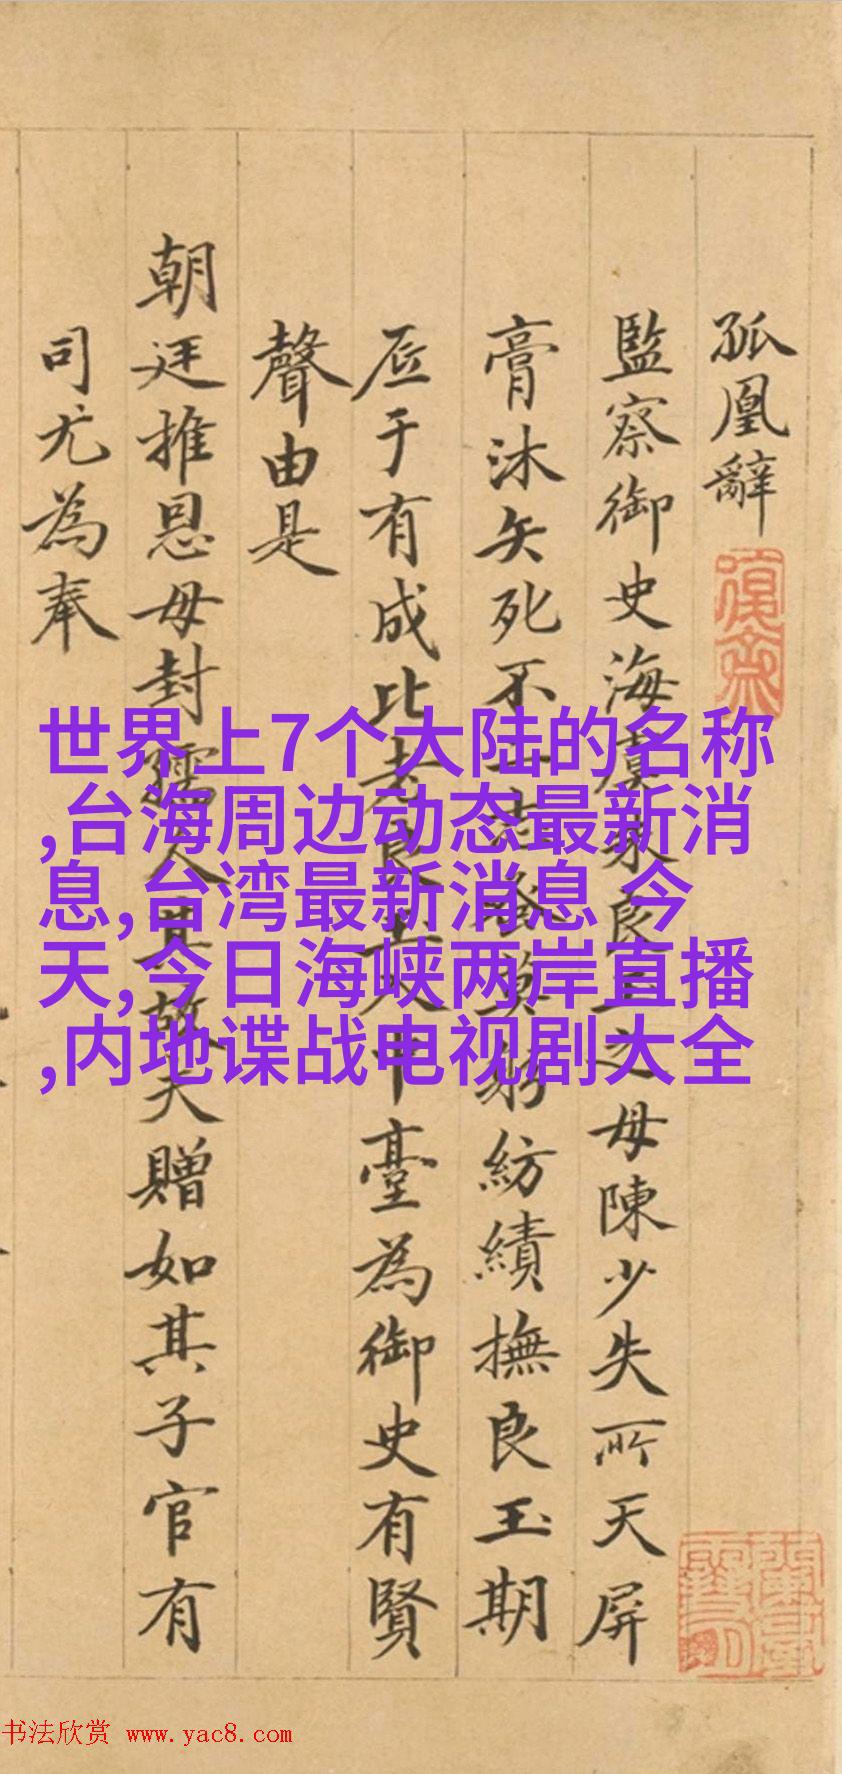 孤凰辭
監察御史海虞朱良玉之母陳少失所天屏
膏沐矢死不二志躬紡績撫良玉期
底于有成比者良玉入中臺為御史有賢
聲由是
朝廷推恩母封孺人其故夫贈如其子官有
司尤為奉
世界上7个大陆的名称
,台海周边动态最新消
息,台湾最新消息 今
天,今日海峡两岸直播
,内地谍战电视剧大全
书法欣赏 www.yac8.com